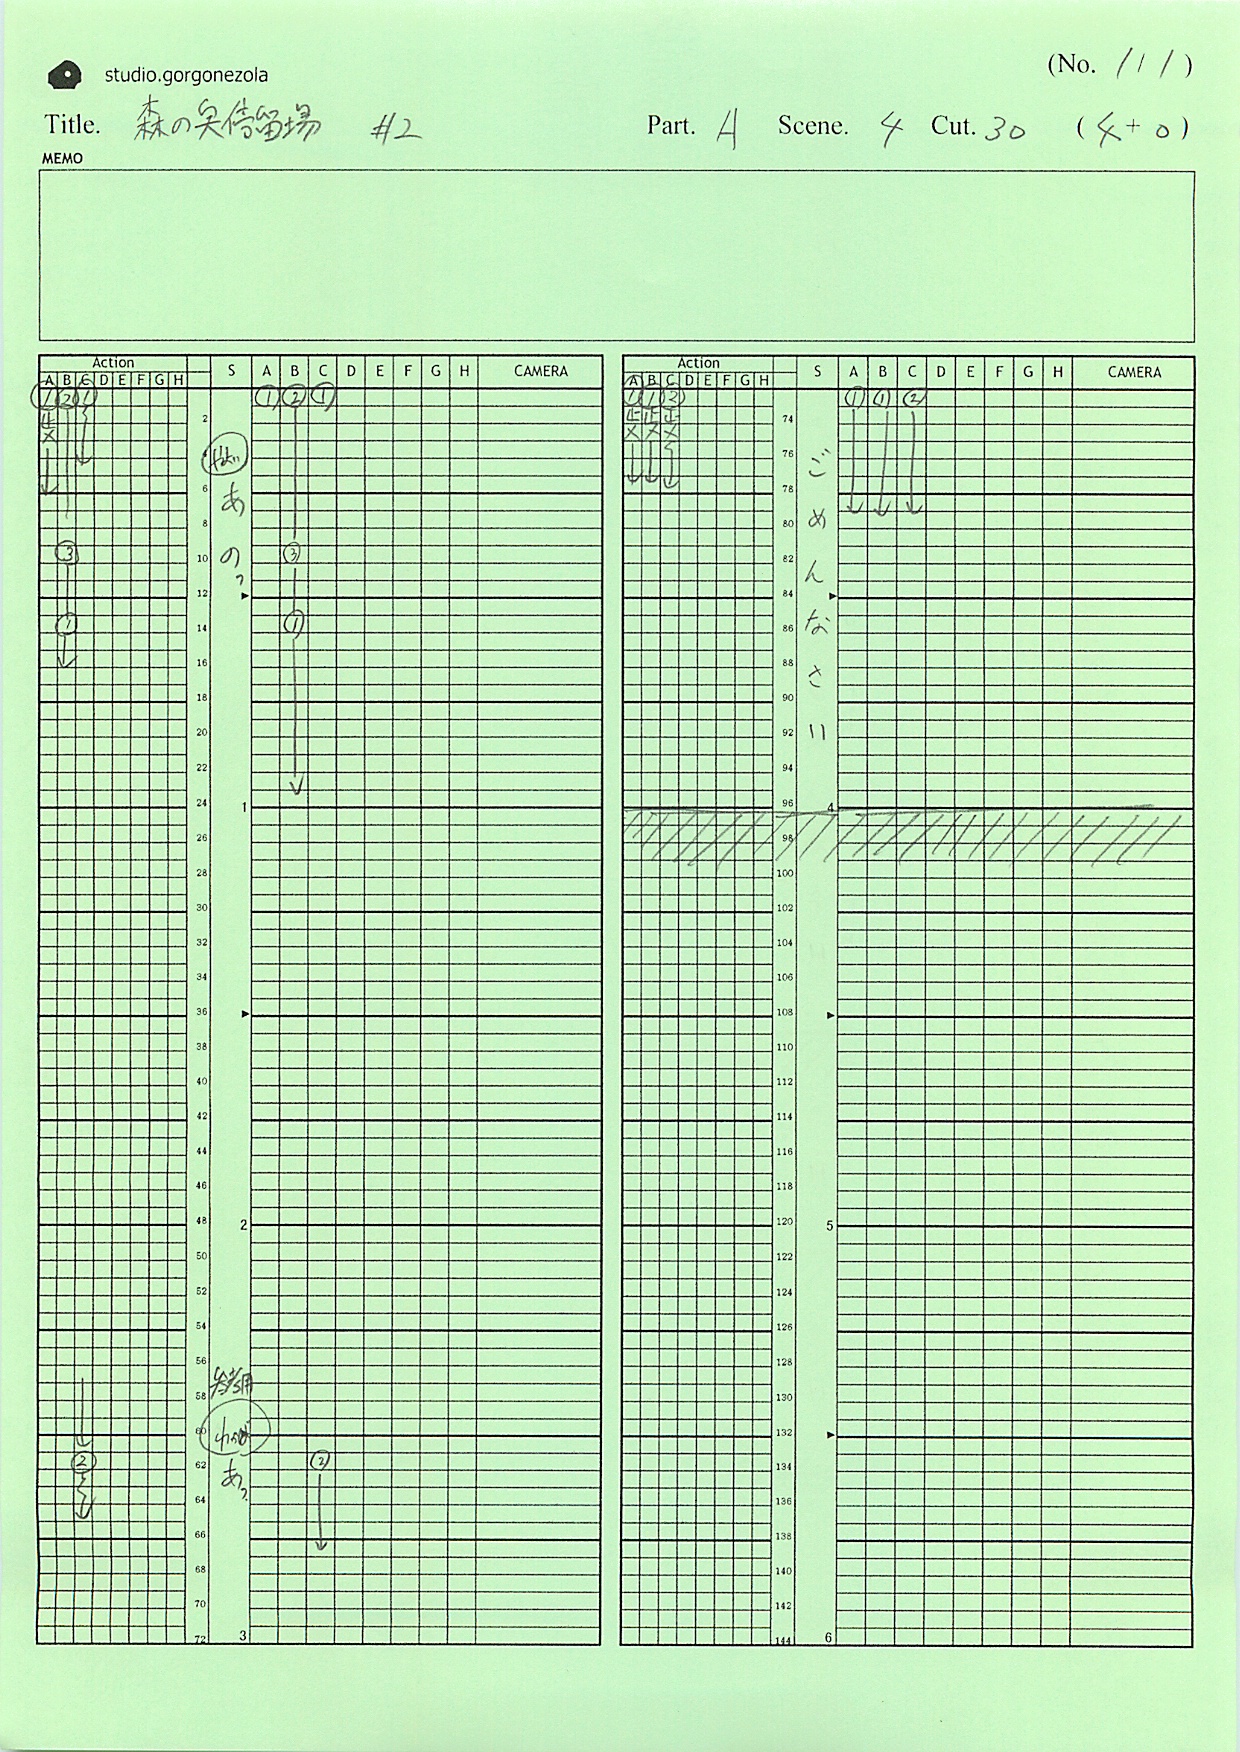 studio.gorgonezola
(No. 1/1)
Title. 森の矢停留場 #2
Part. A Scene. 4 Cut. 30 (4+0)
MEMO
Action S A B C D E F G H CAMERA
A B C D E F G H
① ② ① ① ② ①
止
メ
2
4
6
8
10
12
14
16
18
20
22
24 1
26
28
30
32
34
36
38
40
42
44
46
48 2
50
52
54
56
58
60
62
64
66
68
70
72 3
あ
の?
③ ③
① ①
参考用
② ②
あっ
Action S A B C D E F G H CAMERA
A B C D E F G H
① ① ② ① ① ②
止 止 止
メ メ メ
74
76
78
80
82
84
86
88
90
92
94
96 4
98
100
102
104
106
108
110
112
114
116
118
120 5
122
124
126
128
130
132
134
136
138
140
142
144 6
ご
め
ん
な
さ
い